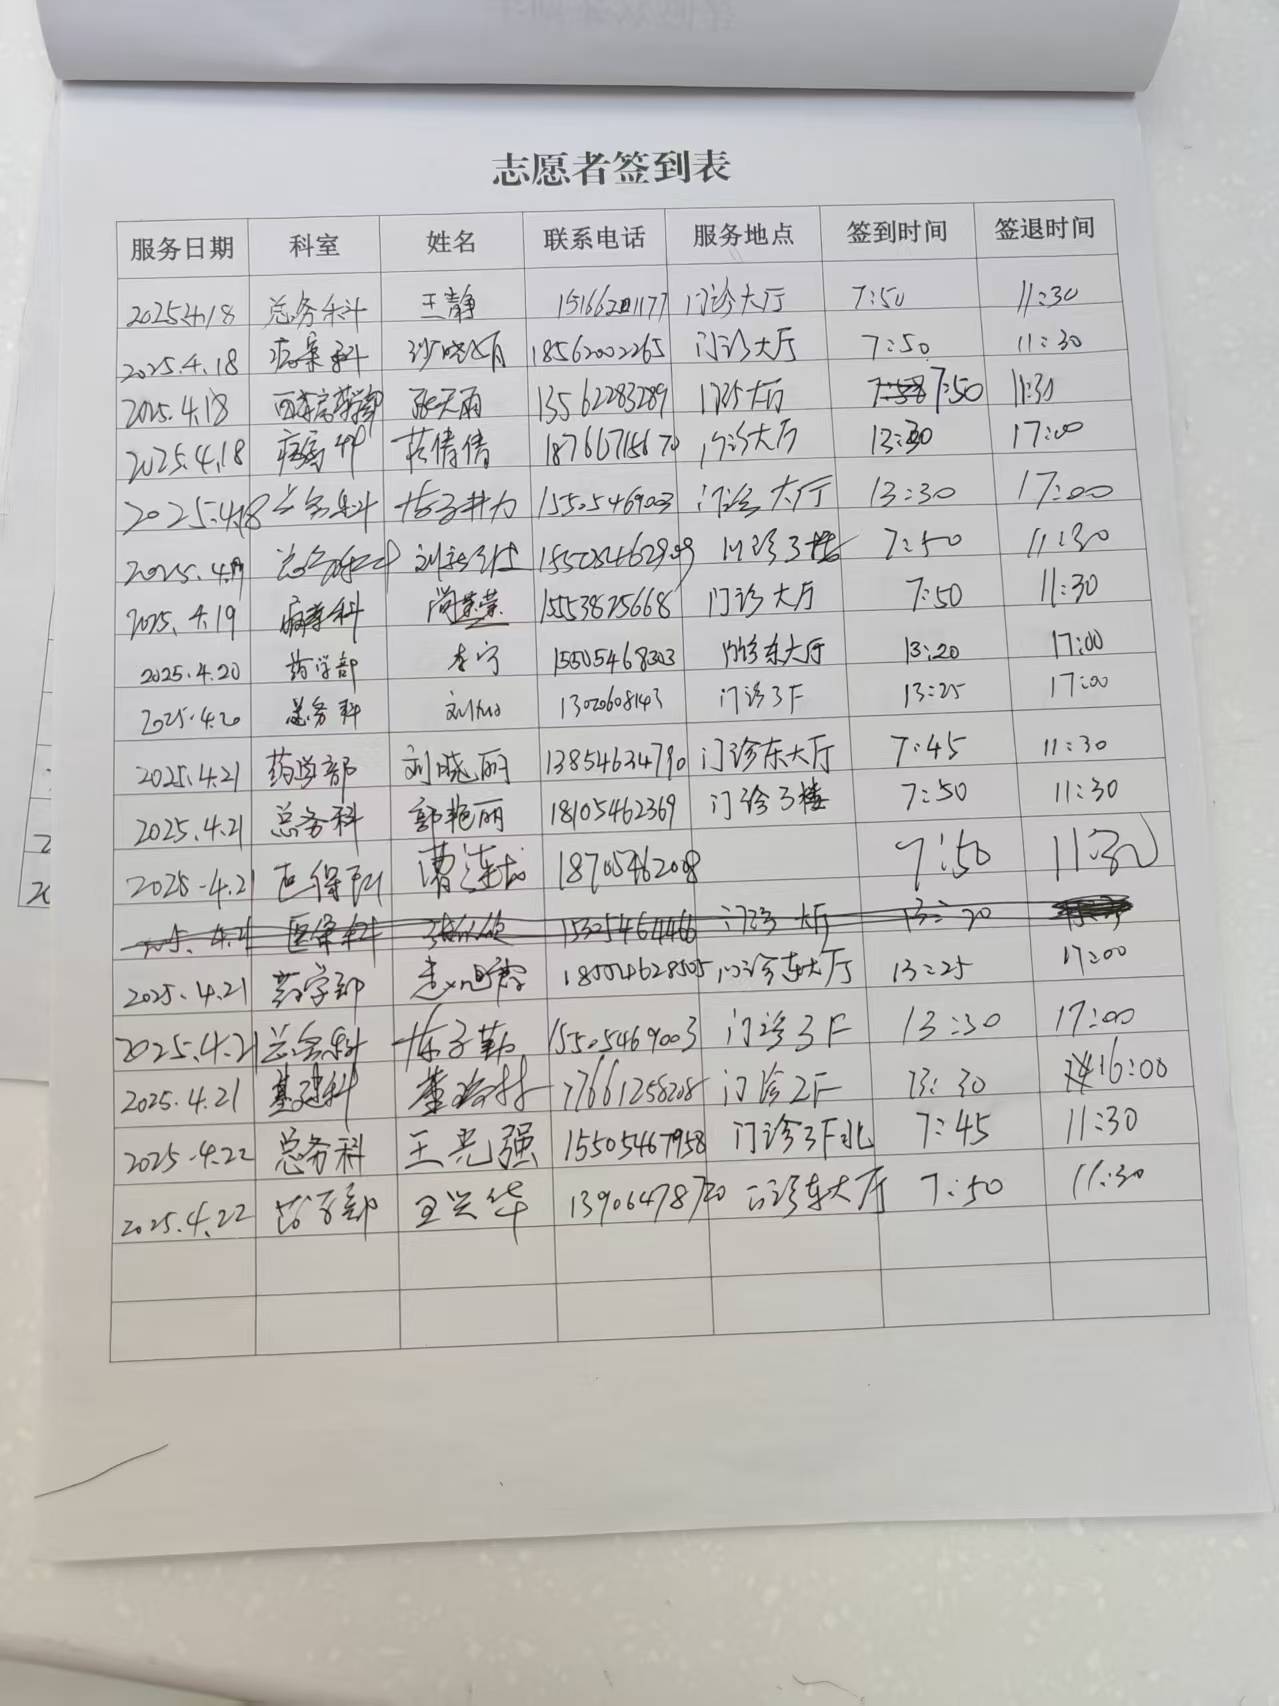 志愿者签到表
服务日期 科室 姓名 联系电话 服务地点 签到时间 签退时间
2025.4.18 总务科 王静 门诊大厅 7:50 11:30
2025.4.18 病案科 18562002265 门诊大厅 7:50 11:30
2025.4.18 张天雨 13562283289 门诊大厅 7:50 11:30
2025.4.18 倩倩 18766715670 门诊大厅 13:30 17:00
2025.4.18 总务科 15505469003 门诊大厅 13:30 17:00
2025.4.19 总务科 门诊3楼 7:50 11:30
2025.4.19 病案科 尚荣荣 15553875668 门诊大厅 7:50 11:30
2025.4.20 药学部 李宁 15505468303 门诊东大厅 13:20 17:00
2025.4.20 总务科 13020608143 门诊3F 13:25 17:00
2025.4.21 药学部 刘晓丽 13854634790 门诊东大厅 7:45 11:30
2025.4.21 总务科 郭艳丽 18105462369 门诊3楼 7:50 11:30
2025.4.21 曹连成 18705462008 7:50 11:30
医保科 15325464466 门诊大厅
2025.4.21 药学部 门诊东大厅 13:25 17:00
2025.4.21 总务科 陈子勤 15505469003 门诊3F 13:30 17:00
2025.4.21 基建科 17661258208 门诊2F 13:30 16:00
2025.4.22 总务科 王光强 15505467958 门诊3F北 7:45 11:30
2025.4.22 药学部 王兴华 13906478720 门诊东大厅 7:50 11:30